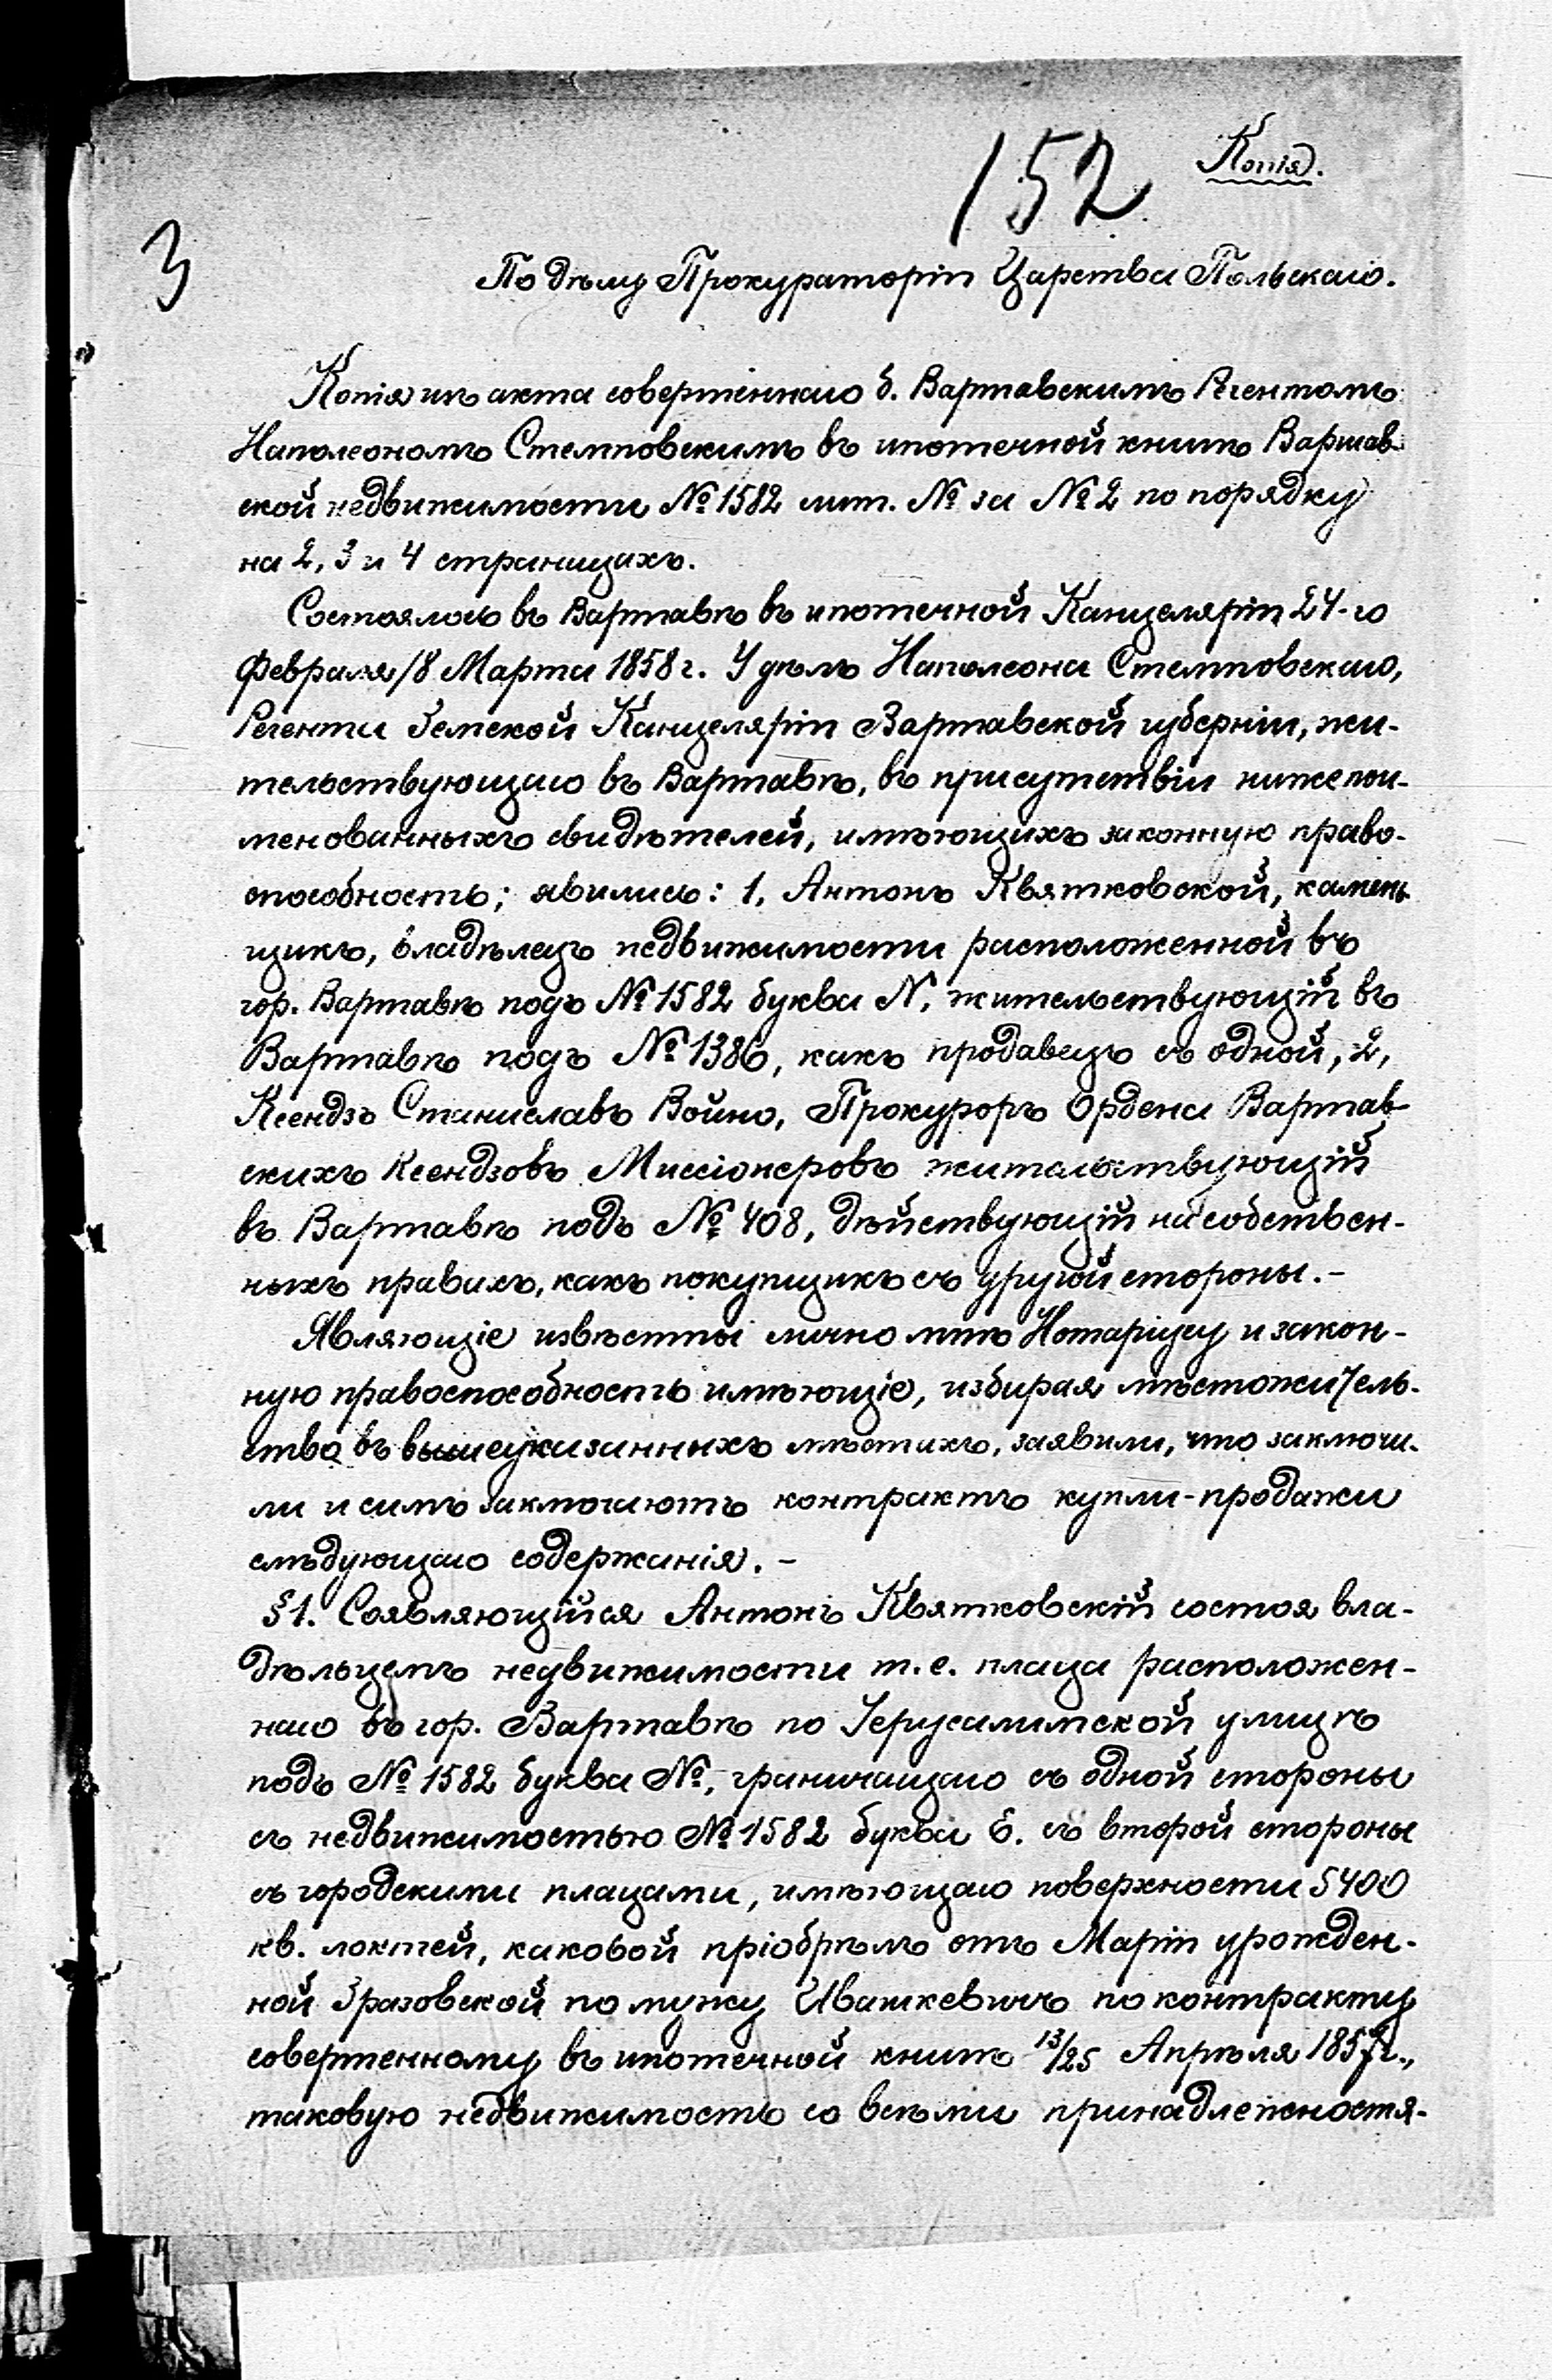 152 Копія.
3
По дѣлу Прокураторіи Царства Польскаго.
Копія изъ акта совершеннаго б. Варшавскимъ Регентомъ
Наполеономъ Стемповскимъ въ ипотечной книгѣ Варшав-
ской недвижимости № 1582 лит. № за № 2 по порядку
на 2, 3 и 4 страницахъ.
Состоялось въ Варшавѣ въ ипотечной Канцеляріи 24-го
Февраля/8 Марта 1858 г. У дѣлъ Наполеона Стемповскаго,
Регента Земской Канцеляріи Варшавской губерніи, жи-
тельствующаго въ Варшавѣ, въ присутствіи нижепои-
менованныхъ свидѣтелей, имѣющихъ законную право-
способность; явились: 1, Антонъ Квятковской, камень-
щикъ, владѣлецъ недвижимости расположенной въ
гор. Варшавѣ подъ № 1582 буква N, жительствующій въ
Варшавѣ подъ № 1386, какъ продавецъ съ одной, 2,
Ксендзъ Станиславъ Войно, Прокуроръ Ордена Варшав-
скихъ Ксендзовъ Миссіонеровъ жительствующій
въ Варшавѣ подъ № 408, дѣйствующій на собствен-
ныхъ правахъ, какъ покупщикъ съ другой стороны.-
Являющіе извѣстны лично мнѣ Нотаріусу и закон-
ную правоспособность имѣющіе, избирая мѣстожитель-
ство въ вышеуказанныхъ мѣстахъ, заявили, что заключи-
ли и симъ заключаютъ контрактъ купли-продажи
слѣдующаго содержанія.-
§ 1. Соявляющійся Антонъ Квятковскій состоя вла-
дѣльцемъ недвижимости т.е. плаца расположен-
наго въ гор. Варшавѣ по Іерусалимской улицѣ
подъ № 1582 буква №, граничащаго съ одной стороны
съ недвижимостью № 1582 буква Е. съ второй стороны
съ городскими плацами, имѣющаго поверхности 5400
кв. локтей, каковой пріобрѣлъ отъ Маріи урожден-
ной Зразовской по мужу Ивашкевичъ по контракту
совершенному въ ипотечной книгѣ 13/25 Апрѣля 1857 г.,
таковую недвижимость со всѣми принадлежностя-